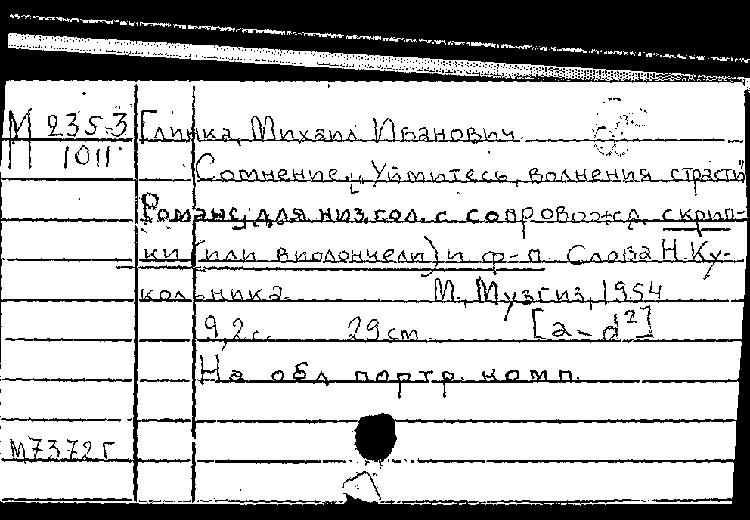 М 235-3 Глинка, Михаил Иванович
М 1011 Сомнение. "Уймитесь, волнения страсти"
Романс; для низ. гол. с сопровожд. скрип-
ки (или виолончели) и ф-п. Слова Н. Ку-
кольника. М., Музгиз, 1954
9,2 с. 29 см [a-d²]
На обл портр. комп.
М7372Г